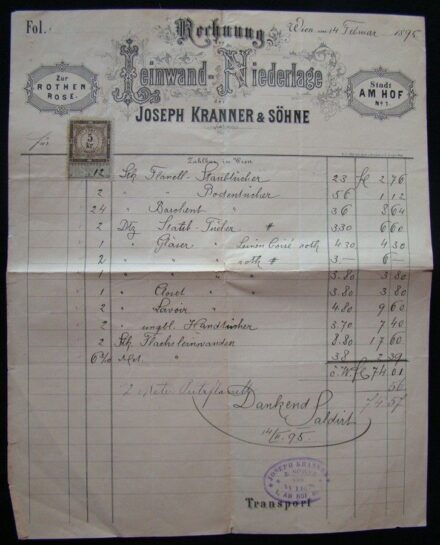 Fol.
Rechnung
Wien, am 14 Februar 1895
Leinwand-Niederlage
Zur
ROTHEN
ROSE.
Stadt
AM HOF
No 7.
JOSEPH KRANNER & SÖHNE
für
5
kr
Zahlbar in Wien
12 Stk Flanell-Staubtücher 23 fl 2 76
2 " Bodentücher 56 1 12
24 " Barchent " 36 8 64
2 Dtz Staub-Tücher # 3.30 6 60
1 " Gläser " roth 4.30 4 30
2 " " roth # 3.— 6 —
1 " " " 3.80 3 80
1 " " " 3.80 3 80
2 " Lavoir " 4.80 9 60
2 " Handtücher 3.70 7 40
2 Stk Flachsleinwanden 8.80 17 60
" 38 2 39
ö. W. fl 74.01
2 56
74.57
Dankend
Saldirt
14/II. 95.
JOSEPH KRANNER
& SÖHNE
WIEN
I. AM HOF
Transport